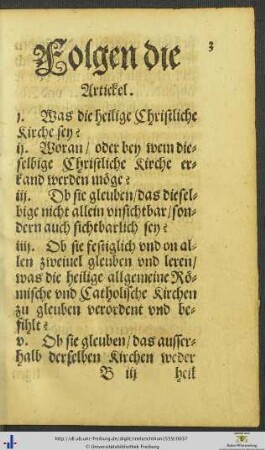 3
Folgen die
Artickel.
j. Was die heilige Christliche
Kirche sey?
ij. Woran/ oder bey wem die=
selbige Christliche Kirche er=
kand werden möge?
iij. Ob sie gleuben/das diesel=
bige nicht allein vnsichtbar/son=
dern auch sichtbarlich sey?
iiij. Ob sie festiglich vnd on al=
len zweiuel gleuben vnd leren/
was die heilige allgemeine Rö=
mische vnd Catholische Kirchen
zu gleuben verordent vnd be=
fihlt?
v. Ob sie gleuben/das ausser=
halb derselben Kirchen weder
B iij heil
© Universitätsbibliothek Freiburg
Baden-Württemberg